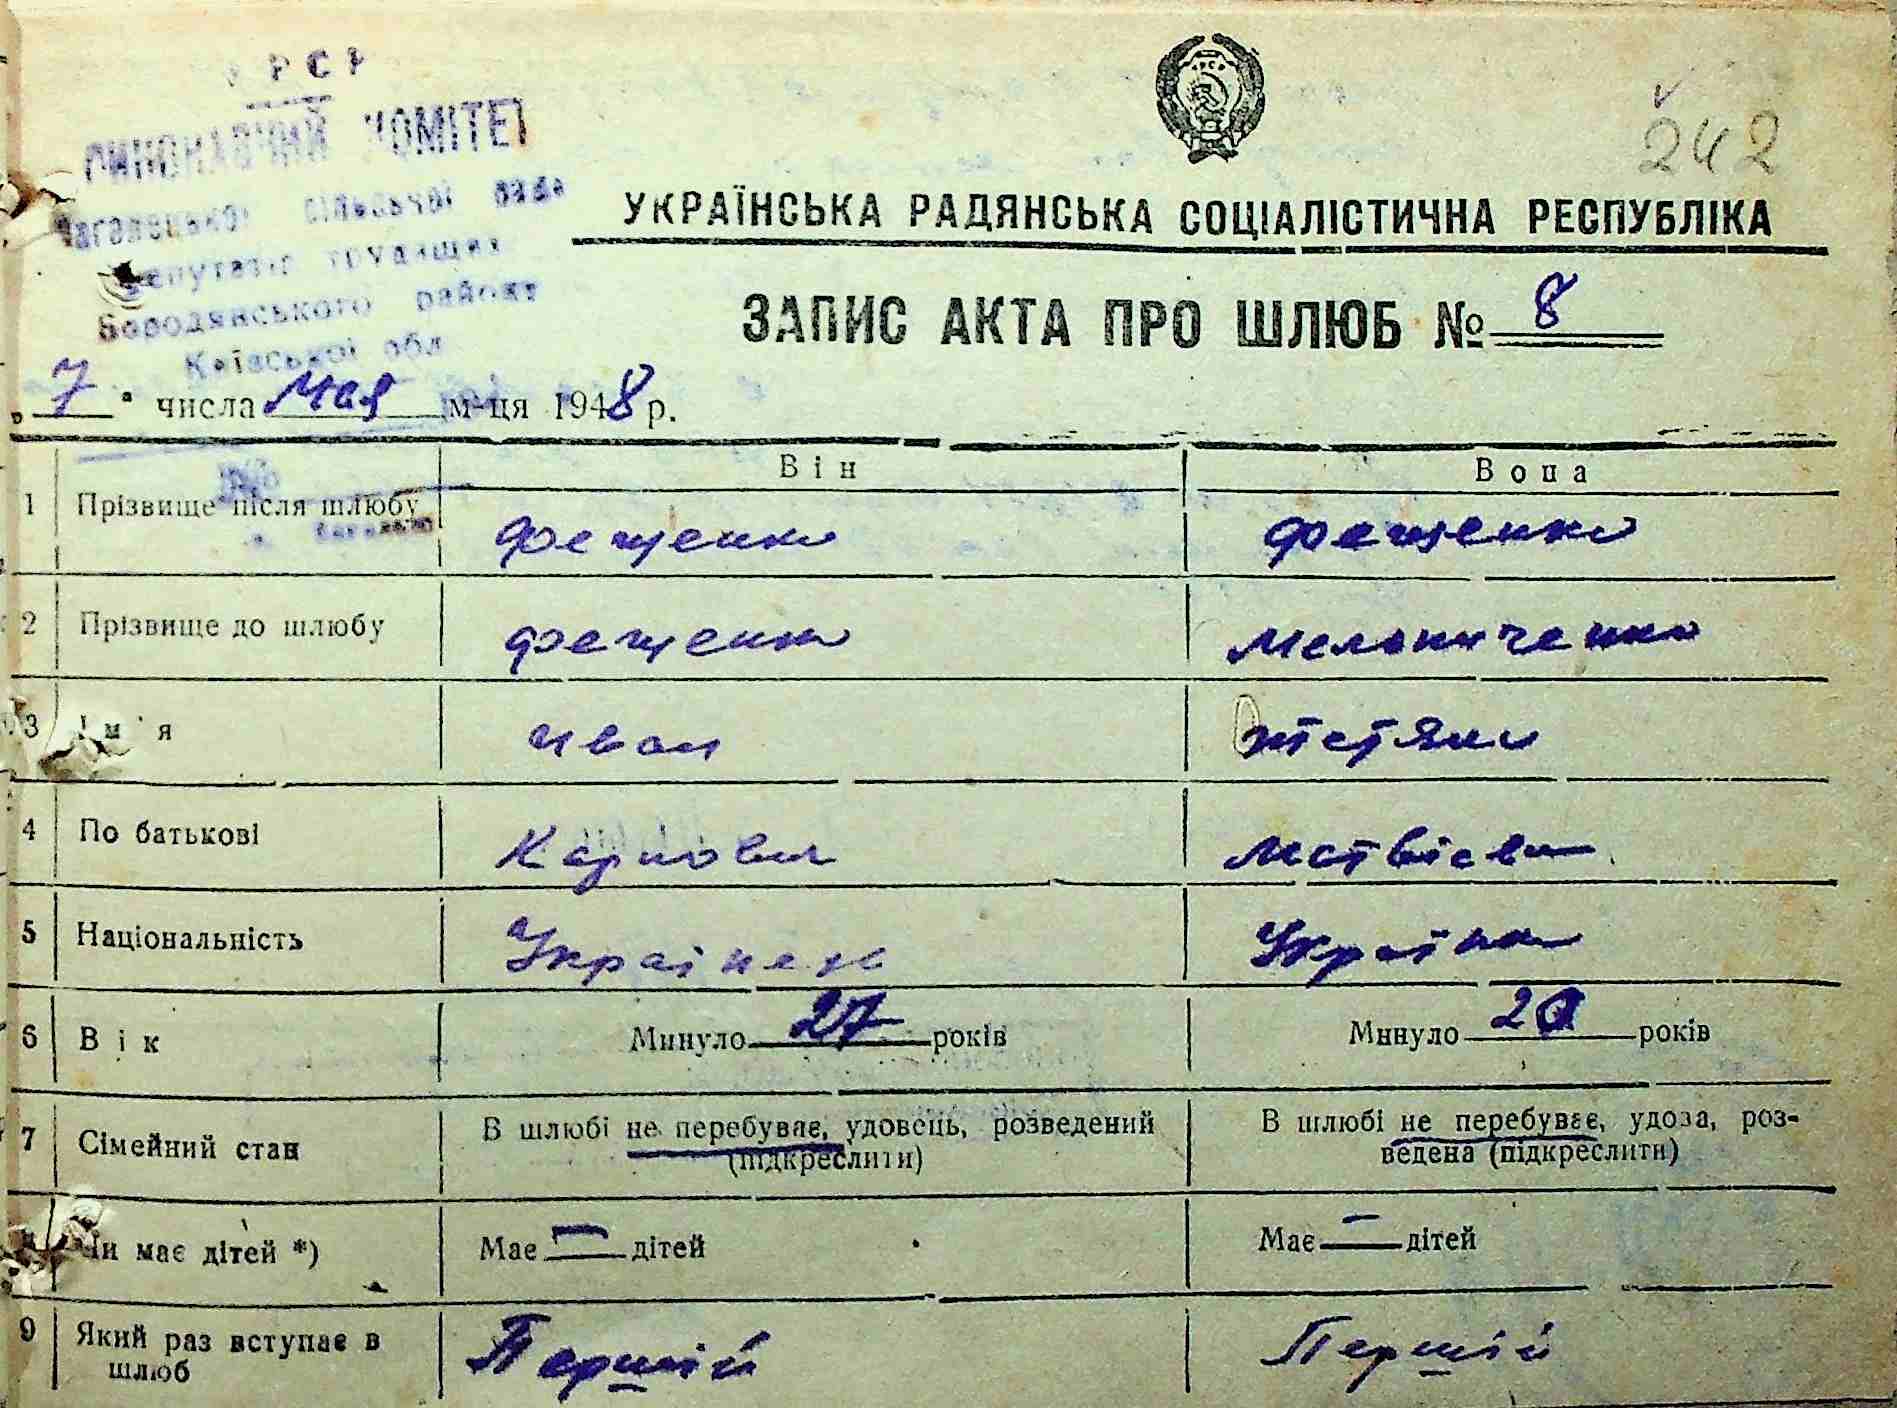 УРСР
ВИКОНАВЧИЙ КОМІТЕТ
сільської ради
депутатів трудящих
Бородянського району
Київської обл
242
УКРАЇНСЬКА РАДЯНСЬКА СОЦІАЛІСТИЧНА РЕСПУБЛІКА
ЗАПИС АКТА ПРО ШЛЮБ № 8
„7“ числа Мая м-ця 1948 р.
Він Вона
1 Прізвище після шлюбу Фещенко Фещенко
2 Прізвище до шлюбу Фещенко Мельниченко
3 Ім'я Иван
4 По батькові Карпович
5 Національність Українец Українка
6 Вік Минуло 27 років Минуло років
7 Сімейний стан В шлюбі не перебуває, удовець, розведений (підкреслити) В шлюбі не перебуває, удова, роз-
ведена (підкреслити)
Чи має дітей *) Має — дітей Має — дітей
9 Який раз вступає в Першій Першій
шлюб